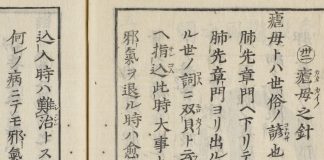 瘧母之針
瘧母トハ世俗ノ諺也
肺先章門ヘ下リテ
肺先章門ヨリ出ル
ル世ノ詞ニ双貝ト云
ヘ指込此時大事ト
邪氣ヲ退ル時ハ愈
込入時ハ難治トス
何レノ病ニテモ邪氣